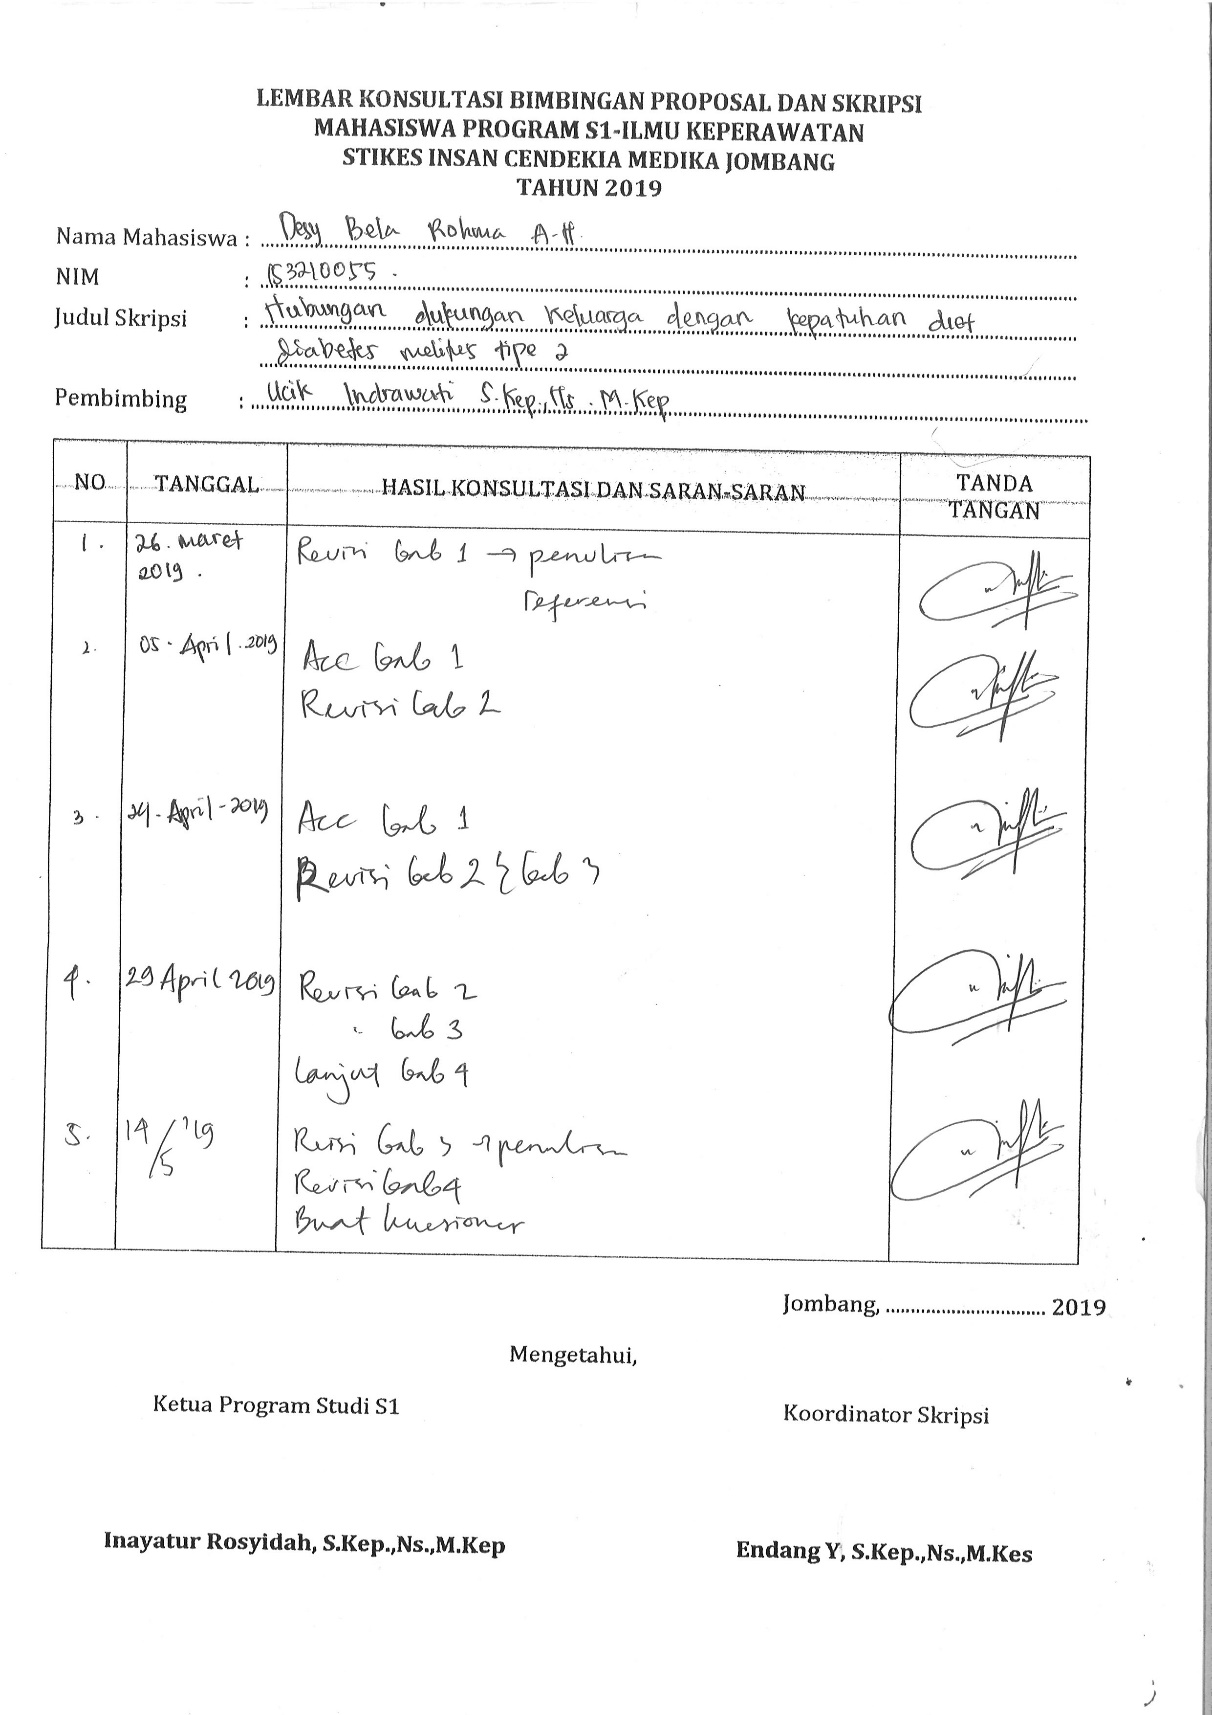 LEMBAR KONSULTASI BIMBINGAN PROPOSAL DAN SKRIPSI
MAHASISWA PROGRAM S1-ILMU KEPERAWATAN
STIKES INSAN CENDEKIA MEDIKA JOMBANG
TAHUN 2019
Nama Mahasiswa : Desy Bela Rohma A.H.
NIM : 153210055 .
Judul Skripsi : Hubungan dukungan keluarga dengan kepatuhan diet
diabetes melitus tipe 2
Pembimbing : Ucik Indrawati S.Kep.,Ns. M.Kep
NO TANGGAL HASIL KONSULTASI DAN SARAN-SARAN TANDA TANGAN
1. 26. Maret 2019. Revisi bab 1 → penulisan
referensi
2. 05. April. 2019 Acc bab 1
Revisi bab 2
3. 24-April-2019 Acc bab 1
Revisi bab 2 & bab 3
4. 29 April 2019 Revisi bab 2
" bab 3
Lanjut bab 4
5. 14/5 '19 Revisi bab 3 → penulisan
Revisi bab 4
Buat kuesioner
Jombang, .............................. 2019
Mengetahui,
Ketua Program Studi S1
Koordinator Skripsi
Inayatur Rosyidah, S.Kep.,Ns.,M.Kep
Endang Y, S.Kep.,Ns.,M.Kes